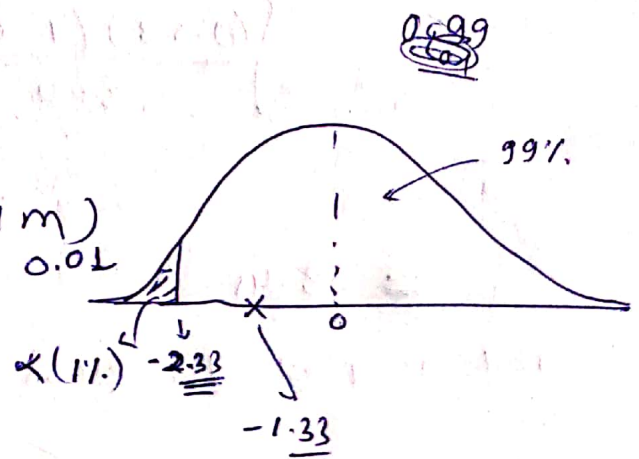 0.99
99%.
m)
0.01
α(1%)
-2.33
0
-1.33